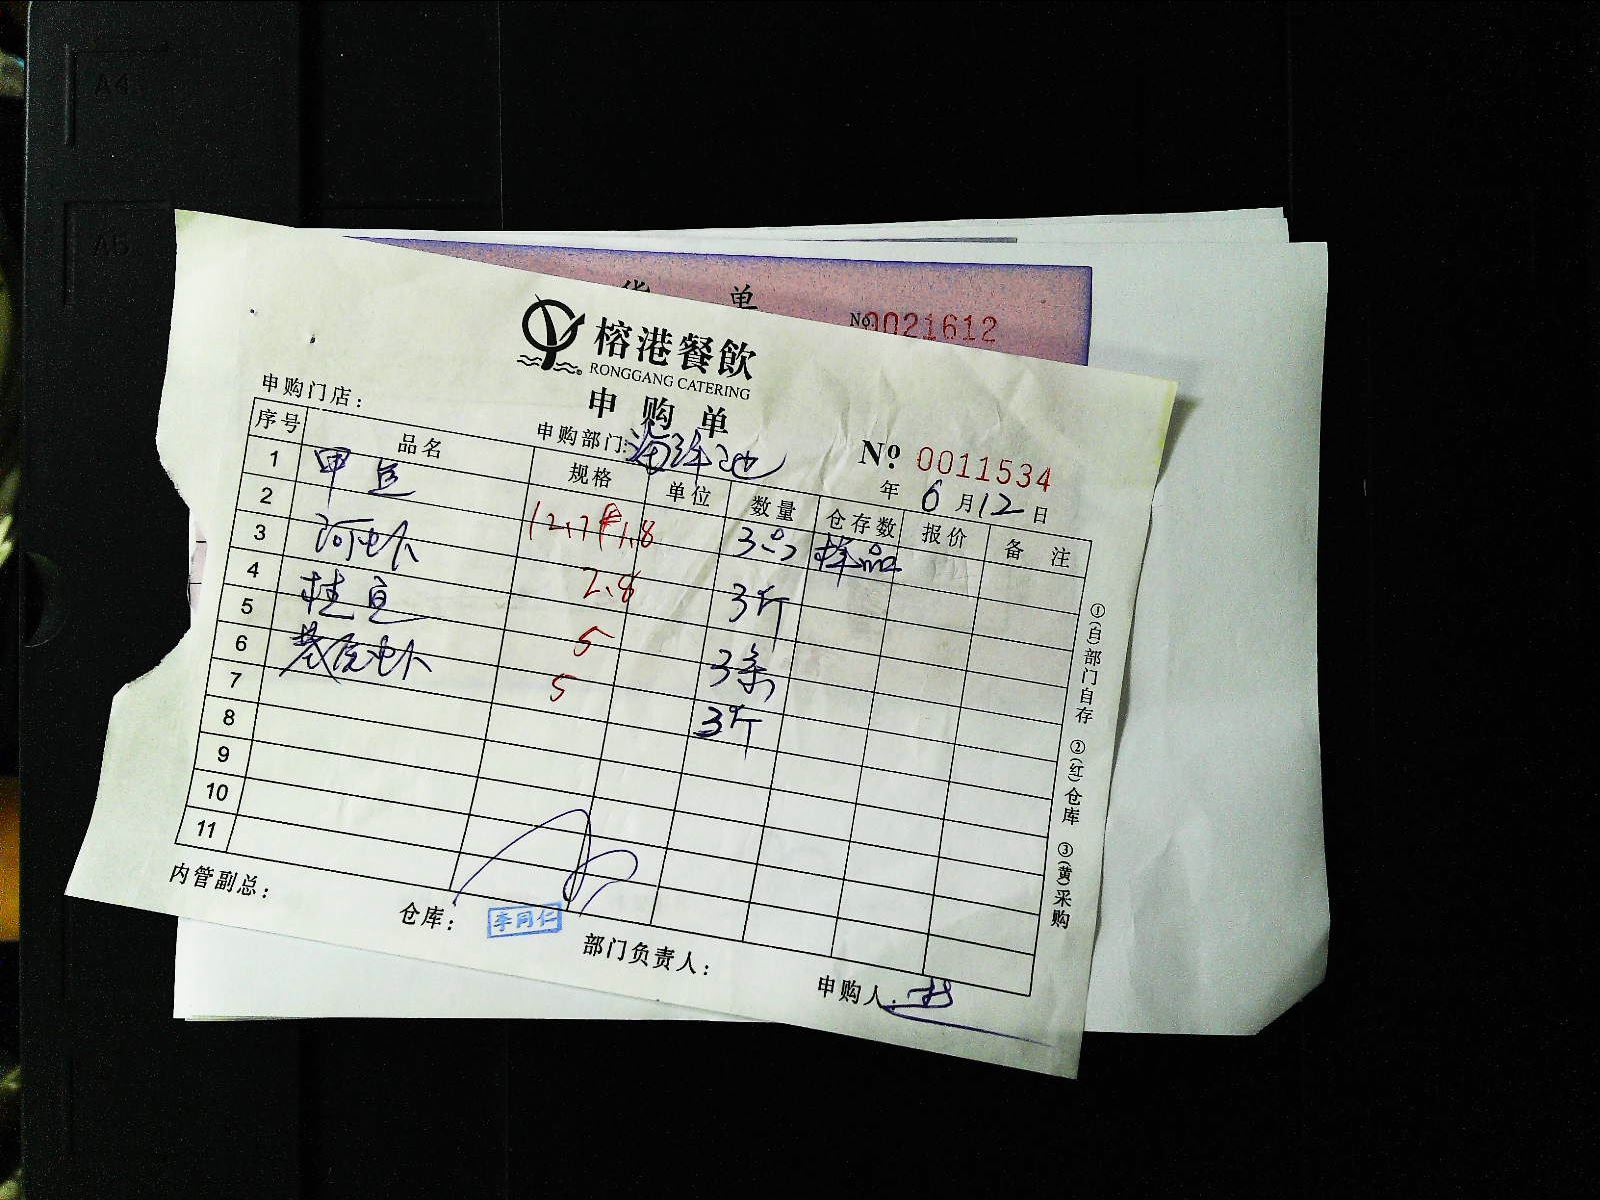 A4
A5
货 单
No.0021612
榕港餐飲
RONGGANG CATERING
申购单
申购门店：
申购部门: 海鲜池
No. 0011534
年 6 月 12 日
序号 品名 规格 单位 数量 仓存数 报价 备 注
1 甲鱼 3只 样品
2
3 河虾 2.8 3斤
4 桂鱼 5 3条
5 基围虾 5 3斤
6
7
8
9
10
11
①(白)部门自存 ②(红)仓库 ③(黄)采购
内管副总：
仓库： 李同仁
部门负责人：
申购人: